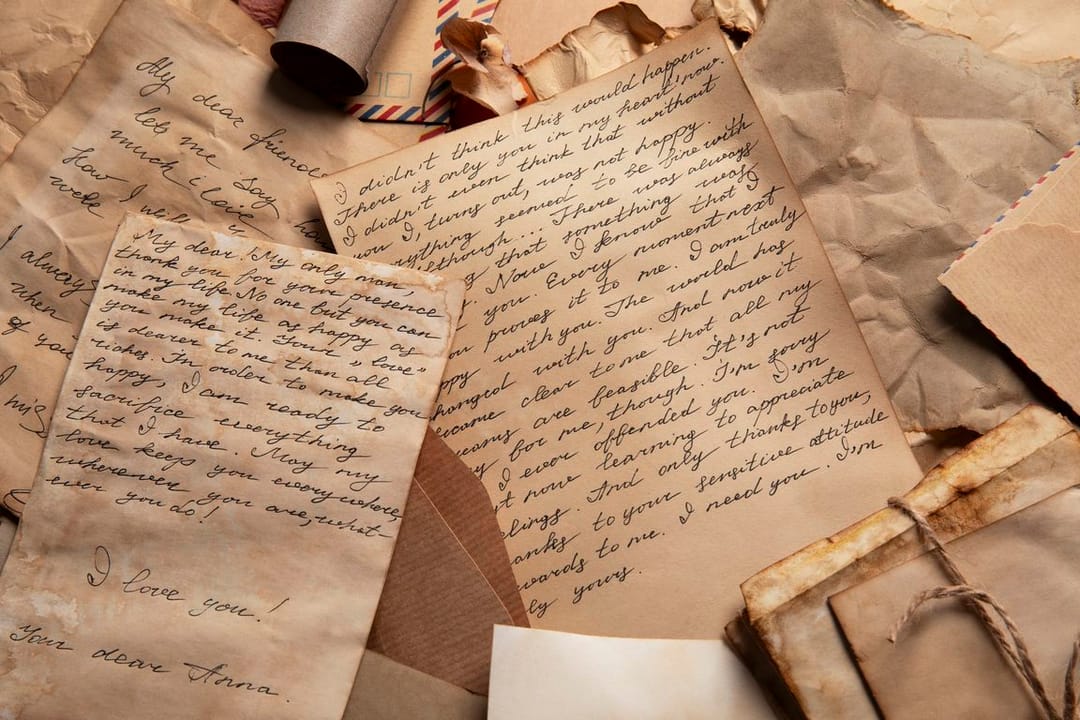 My dear friend
let me say
much i love
How I
week
I always
when
of you
I
his
My dear! My only man,
thank you for your presence
in my life. No one but you can
make my life as happy as
you make it. Your „love"
is dearer to me than all
riches. In order to make you
happy, I am ready to
sacrifice everything
that I have. May my
love keeps you everywhere,
wherever you are, what-
ever you do!
I love you!
Your dear Anna.
I didn't think this would happen.
There is only you in my heart, now.
I didn't even think that without
you I, turns out, was not happy. It
everything seemed to be fine with
although... There was always
that something was
Now I know that I
you. Every moment next
proves it to me. I am truly
with you. The world has
changed with you. And now it
became clear to me that all my
are feasible. It's not
for me, though. I'm sorry
I ever offended you. I'm
now learning to appreciate
And only thanks to you,
to your sensitive attitude
to me. I need you. I'm
yours.